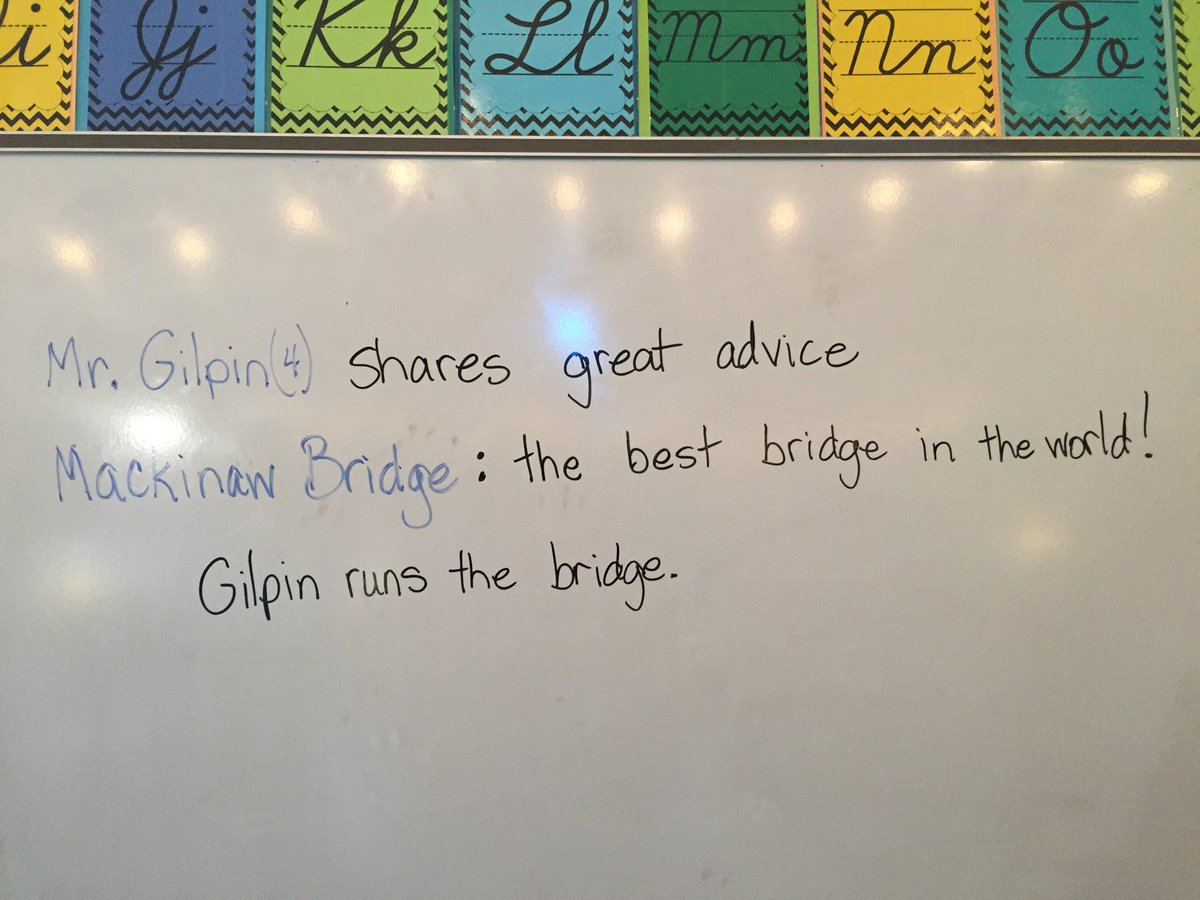 i Jj Kk Ll Mm Nn Oo
Mr. Gilpin(4) shares great advice
Mackinaw Bridge: the best bridge in the world!
Gilpin runs the bridge.